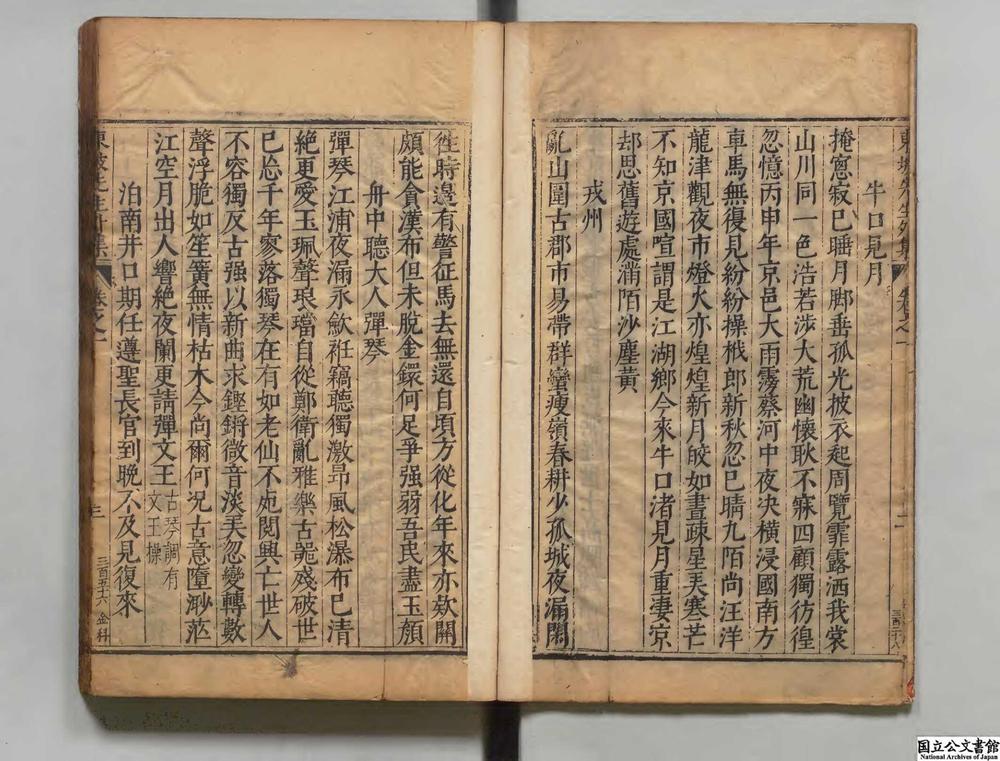 牛口見月
掩窻寂已睡月脚垂孤光披衣起周覽霏露洒我裳
山川同一色浩若涉大荒幽懷耿不寐四顧獨彷徨
忽憶丙申年京邑大雨霶蔡河中夜决橫浸國南方
車馬無復見紛紛操栰郎新秋忽已晴九陌尚汪洋
龍津觀夜市燈火亦煌煌新月皎如晝疎星弄寒芒
不知京國喧謂是江湖鄉今來牛口渚見月重凄凉
却思舊遊處滿陌沙塵黃
戎州
亂山圍古郡市易帶群蠻瘦嶺春耕少孤城夜漏閑
往時邊有警征馬去無還自頃方從化年來亦欵關
頗能貪漢布但未脫金鐶何足爭强弱吾民盡玉顏
舟中聽大人彈琴
彈琴江浦夜漏永歛袵竊聽獨激昂風松瀑布已清
絶更愛玉珮聲琅璫自從鄭衛亂雅樂古噐殘破世
已忘千年寥落獨琴在有如老仙不死閱興亡世人
不容獨反古强以新曲求鏗鏘微音淡弄忽變轉數
聲浮脆如笙簧無情枯木今尚爾何况古意墮渺茫
江空月出人響絶夜闌更請彈文王古琴調有
文王操
泊南井口期任遵聖長官到晚不及見復來
卷之一
三
三百五十六
金科
国立公文書館
National Archives of Japan